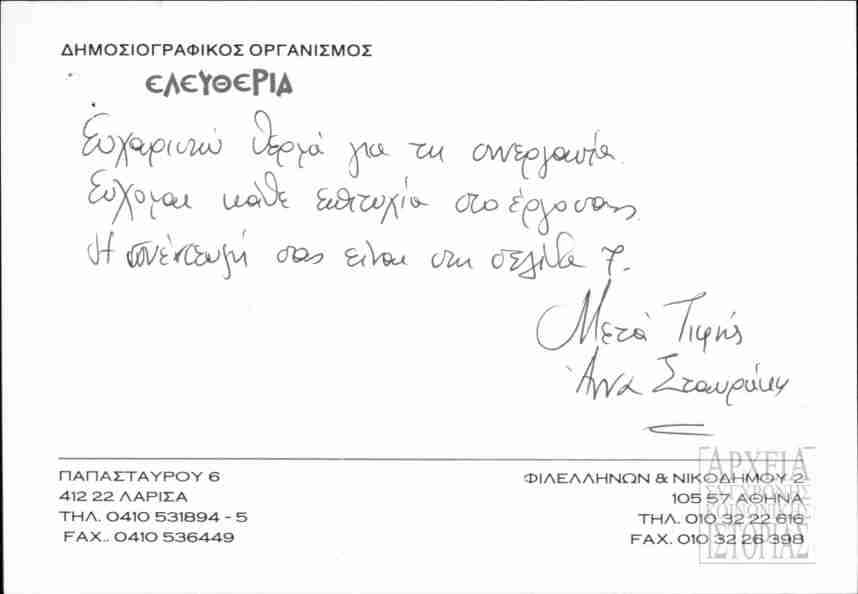 ΔΗΜΟΣΙΟΓΡΑΦΙΚΟΣ ΟΡΓΑΝΙΣΜΟΣ
ΕΛΕΥΘΕΡΙΑ
Ευχαριστώ θερμά για τη συνεργασία.
Εύχομαι κάθε επιτυχία στο έργο σας.
Η συνέντευξή σας είναι στη σελίδα 7.
Μετά Τιμής
Άννα Σταυράκη
ΠΑΠΑΣΤΑΥΡΟΥ 6
412 22 ΛΑΡΙΣΑ
ΤΗΛ. 0410 531894 - 5
FAX.. 0410 536449
ΦΙΛΕΛΛΗΝΩΝ & ΝΙΚΟΔΗΜΟΥ 2
105 57 ΑΘΗΝΑ
ΤΗΛ. 010 32 22 616
FAX. 010 32 26 398
ΑΡΧΕΙΑ
ΣΥΓΧΡΟΝΗΣ
ΚΟΙΝΩΝΙΚΗΣ
ΙΣΤΟΡΙΑΣ